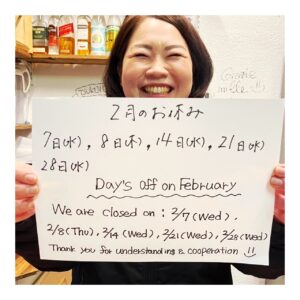 2月のお休み
7日(水), 8日木, 14日(水), 21日(水)
28日(水)
Day's off on February
We are closed on : 2/7(Wed),
2/8(Thu), 2/14(Wed), 2/21(Wed), 2/28(Wed)
Thank you for understanding & cooperation